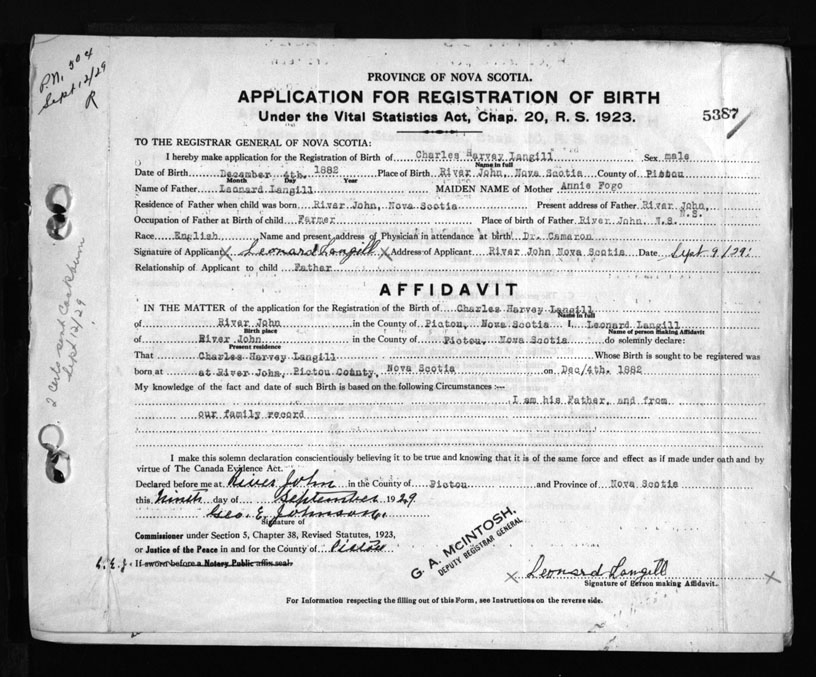 P.N. 504
Sept 12/29
R
PROVINCE OF NOVA SCOTIA.
APPLICATION FOR REGISTRATION OF BIRTH
Under the Vital Statistics Act, Chap. 20, R. S. 1923.
5387
TO THE REGISTRAR GENERAL OF NOVA SCOTIA:
I hereby make application for the Registration of Birth of Charles Harvey Langill Sex male
Name in full
Date of Birth December 4th. 1882 Place of Birth River John, Nova Scotia County of Pictou
Month Day Year
Name of Father Leonard Langill MAIDEN NAME of Mother Annie Fogo
Residence of Father when child was born River John, Nova Scotia Present address of Father River John, N.S.
Occupation of Father at Birth of child Farmer Place of birth of Father River John N.S.
Race English Name and present address of Physician in attendance at birth Dr. Camaron
Signature of Applicant X Leonard Langill X Address of Applicant River John Nova Scotia Date Sept 9/29.
Relationship of Applicant to child Father
2 certs send
Sept 12/29
AFFIDAVIT
IN THE MATTER of the application for the Registration of the Birth of Charles Harvey Langill
Name in full
of River John in the County of Pictou, Nova Scotia I, Leonard Langill
Birth place Name of person making Affidavit
of River John in the County of Pictou, Nova Scotia do solemnly declare:
Present residence
That Charles Harvey Langill Whose Birth is sought to be registered was
born at at River John, Pictou County, Nova Scotia on Dec/4th. 1882
My knowledge of the fact and date of such Birth is based on the following Circumstances :—
I am his Father, and from
our family record
I make this solemn declaration conscientiously believing it to be true and knowing that it is of the same force and effect as if made under oath and by
virtue of The Canada Evidence Act.
Declared before me at River John in the County of Pictou and Province of Nova Scotia
this Ninth day of September 1929
Geo. E. Johnson.
Signature of
Commissioner under Section 5, Chapter 38, Revised Statutes, 1923,
or Justice of the Peace in and for the County of Pictou
G. E. J. If sworn before a Notary Public affix seal.
G. A. McINTOSH,
DEPUTY REGISTRAR GENERAL
X Leonard Langill X
Signature of Person making Affidavit.
For Information respecting the filling out of this Form, see Instructions on the reverse side.